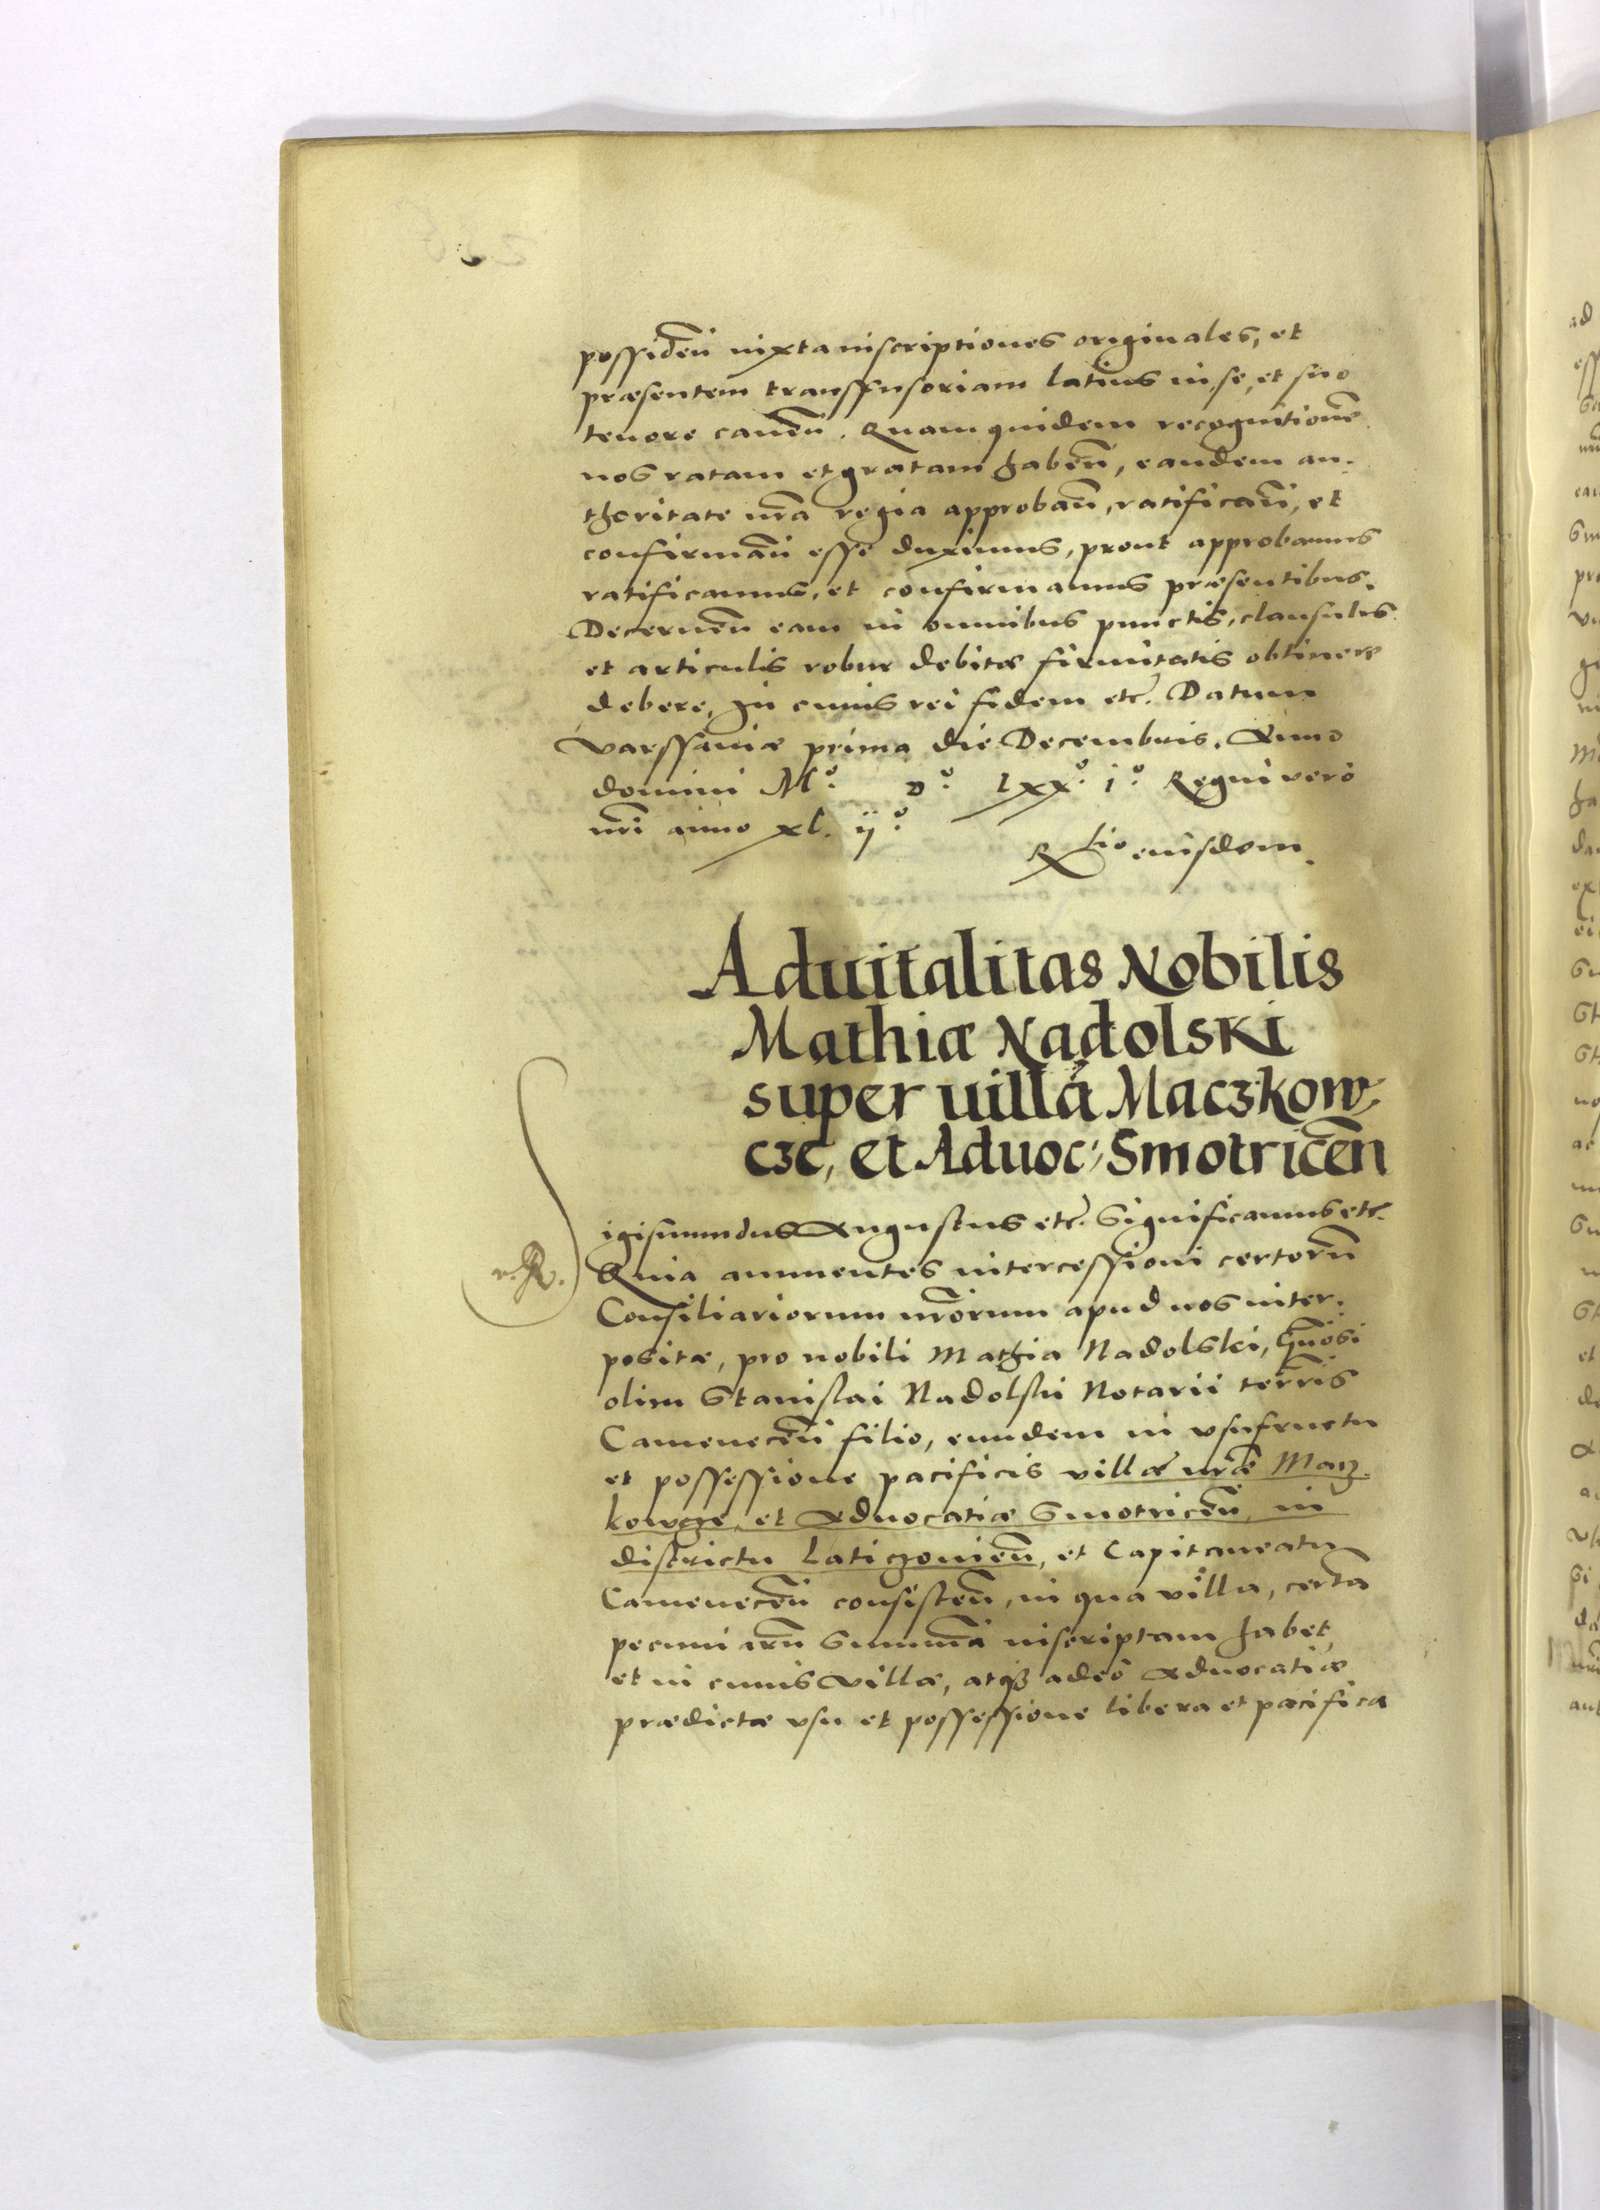 possiden̄ iuxta inscriptiones originales, et
præsentem transfusoriam latius in se, et suo
tenore canen̄. Quam quidem recognitionē
nos ratam et gratam haben̄, eandem au-
thoritate nr̄a regia approban̄, ratifican̄, et
confirman̄ esse duximus, prout approbamus
ratificamus, et confirmamus præsentibus.
Decernen̄ eam in omnibus punctis, clausulis
et articulis robur debitæ firmitatis obtinere
debere, In cuius rei fidem etc. Datum
Varssauiæ prima die Decembris. Anno
domini M.º D.º lxx.º i.º Regni vero
nr̄i anno xl. ij.º
Rtio eiusdem.
Aduitalitas Nobilis
Mathiæ Nadolski
super uillā Maczkow,
cze, et Aduoc: Smotricen̄
S
igismundus Augustus etc. Significamus etc.
r. R.
Quia annuentes intercessioni certorū
Consiliariorum nr̄orum apud nos inter-
positæ, pro nobili Mathia Nadolski, Gn̄osi
olim Stanislai Nadolski Notarii terrīs
Camenecen̄ filio, eundem in vsufructu
et possessione pacificis villæ nr̄æ Macz-
kowcze, et Aduocatiæ Smotricen̄, in
districtu Laticzouien̄, et Capitaneatu
Camenecen̄ consisten̄, in qua villa, certā
pecuniarū summā inscriptam habet,
et in cuius villæ, atq3 adeò Aduocatiæ
prædictæ vsu et possessione libera et pacifica